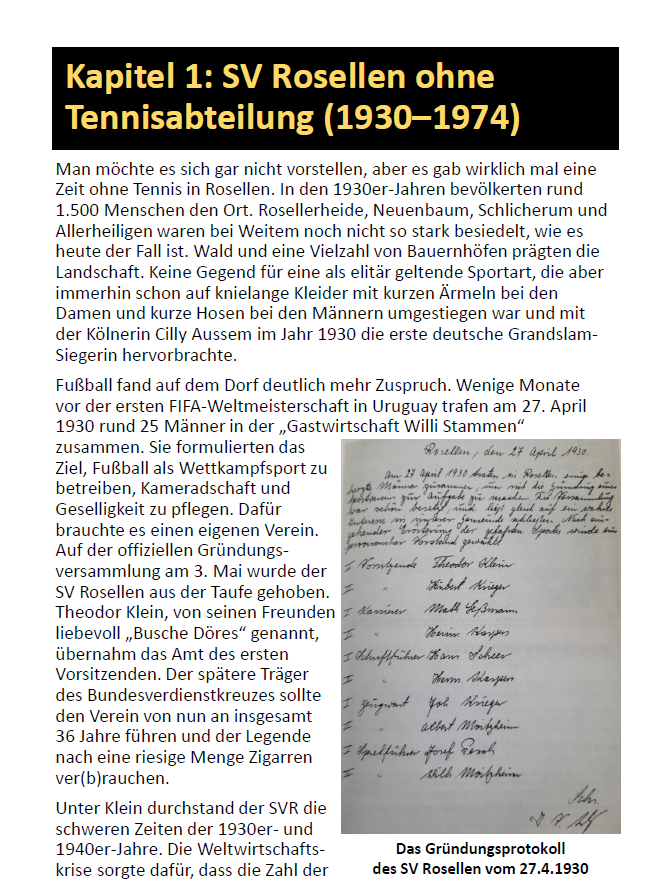 Kapitel 1: SV Rosellen ohne
Tennisabteilung (1930–1974)
Man möchte es sich gar nicht vorstellen, aber es gab wirklich mal eine
Zeit ohne Tennis in Rosellen. In den 1930er-Jahren bevölkerten rund
1.500 Menschen den Ort. Rosellerheide, Neuenbaum, Schlicherum und
Allerheiligen waren bei Weitem noch nicht so stark besiedelt, wie es
heute der Fall ist. Wald und eine Vielzahl von Bauernhöfen prägten die
Landschaft. Keine Gegend für eine als elitär geltende Sportart, die aber
immerhin schon auf knielange Kleider mit kurzen Ärmeln bei den
Damen und kurze Hosen bei den Männern umgestiegen war und mit
der Kölnerin Cilly Aussem im Jahr 1930 die erste deutsche Grandslam-
Siegerin hervorbrachte.
Fußball fand auf dem Dorf deutlich mehr Zuspruch. Wenige Monate
vor der ersten FIFA-Weltmeisterschaft in Uruguay trafen am 27. April
1930 rund 25 Männer in der „Gastwirtschaft Willi Stammen“
zusammen. Sie formulierten das
Ziel, Fußball als Wettkampfsport zu
betreiben, Kameradschaft und
Geselligkeit zu pflegen. Dafür
brauchte es einen eigenen Verein.
Auf der offiziellen Gründungs-
versammlung am 3. Mai wurde der
SV Rosellen aus der Taufe gehoben.
Theodor Klein, von seinen Freunden
liebevoll „Busche Döres“ genannt,
übernahm das Amt des ersten
Vorsitzenden. Der spätere Träger
des Bundesverdienstkreuzes sollte
den Verein von nun an insgesamt
36 Jahre führen und der Legende
nach eine riesige Menge Zigarren
ver(b)rauchen.
Unter Klein durchstand der SVR die
schweren Zeiten der 1930er- und
1940er-Jahre. Die Weltwirtschafts-
krise sorgte dafür, dass die Zahl der
Rosellen, den 27 April 1930.
Am 27 April 1930 traten in Rosellen einige be-
herzte Männer zusammen, um sich die Gründung eines
zur Aufgabe zu machen. Die Versammlung
war schön besetzt, und liegt gleich auf ein wahres
Interesse in unserer Gemeinde schließen. Nach ein-
gehender Erörterung der Sports wurde ein
Vorstand gewählt
I Vorsitzende Theodor Klein
II " Hubert Krieger
I Kassierer Math.
II " Heinr.
I Schriftführer Hans
II " Herm.
I Zeugwart Joh Krieger
II " Albert Moitzheim
I Spielführer Josef
II " Wilh. Moitzheim
Das Gründungsprotokoll
des SV Rosellen vom 27.4.1930